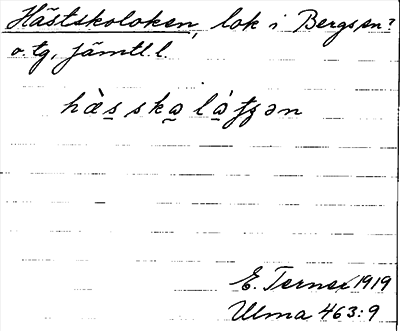 Hästskoloken, lok i Bergs sn?
o. tg, Jämtl. l.
hàs̠ska̠là̠tʒən
E. Terner 1919
Ulma 463:9